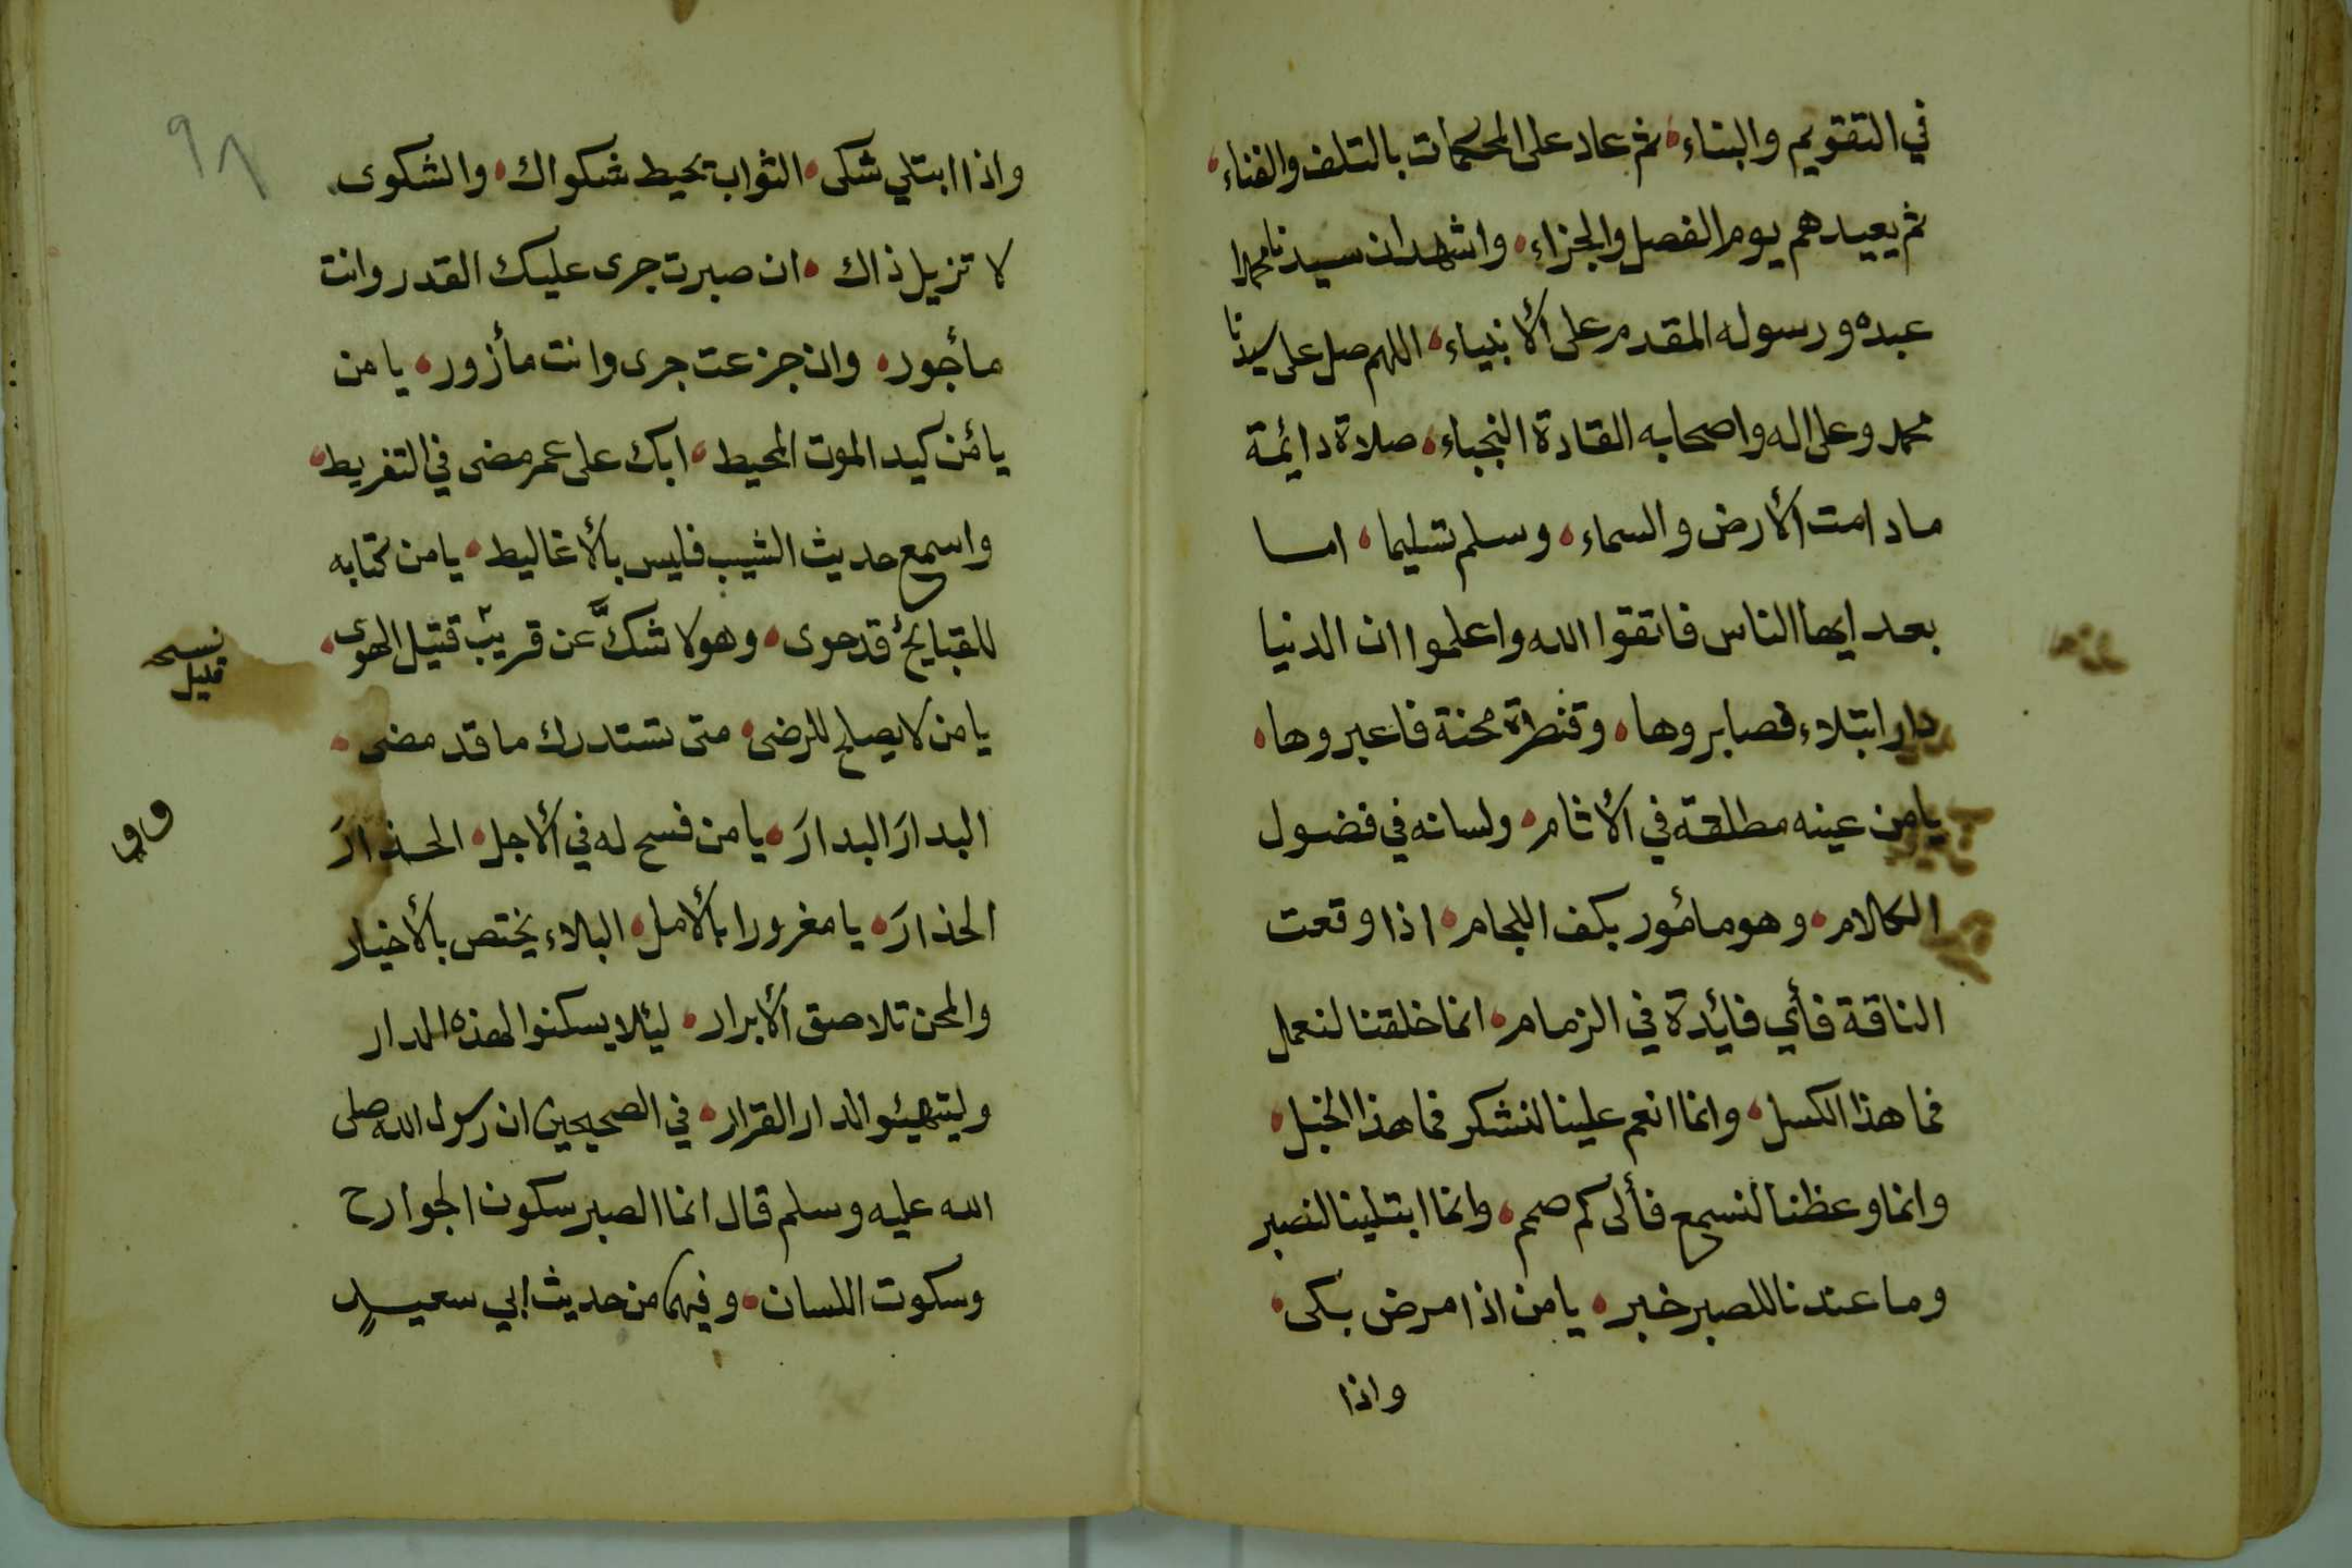 في التقويم والبناء، ثم عاد على المحكمات بالتلف والفناء،
ثم يعيدهم يوم الفصل والجزاء، واشهد ان سيدنا محمدا
عبده ورسوله المقدم على الأنبياء، اللهم صل على سيدنا
محمد وعلى اله واصحابه القادة النجباء، صلاة دائمة
مادامت الأرض والسماء، وسلم تسليما، اما
بعد ايها الناس فاتقوا الله واعلموا ان الدنيا
دار ابتلاء فصابروها، وقنطرة محنة فاعبروها،
يا من عينه مطلقة في الأثام، ولسانه في فضول
الكلام، وهو مأمور بكف اللجام، اذا وقعت
الناقة فأي فائدة في الزمام، انما خلقنا لنعمل
فما هذا الكسل، وانما انعم علينا لنشكر فما هذا الخبل،
وانما وعظنا لنسمع فألى كم صمم، وانما ابتلينا لنصبر
وما عندنا للصبر خبر، يا من اذا مرض بكى،
واذا
٩٨
واذا ابتلي شكى، الثواب يحيط شكواك، والشكوى
لا تزيل ذاك، ان صبرت جرى عليك القدر وانت
مأجور، وان جزعت جرى وانت مأزور، يا من
يأمن كيد الموت المحيط، ابك على عمر مضى في التفريط،
واسمع حديث الشيب فليس بالأغاليط، يا من كتابه
للقبايح قد حوى، وهو لا شكَّ عن قريب قتيل الهوى،
نسخه
قليل
يا من لا يصلح للرضى، متى تستدرك ما قد مضى،
البدارَ البدارَ، يا من فسح له في الأجل، الحذارَ
الحذارَ، يا مغرورا بالأمل، البلاء يختص بالأخيار
والمحن تلاصق الأبرار، ليئلا يسكنوا لهذه الدار
وليتهيئو الدار القرار، في الصحيحين ان رسول الله صلى
الله عليه وسلم قال انما الصبر سكون الجوارح
وسكوت اللسان، وفيهما من حديث ابي سعيدٍ